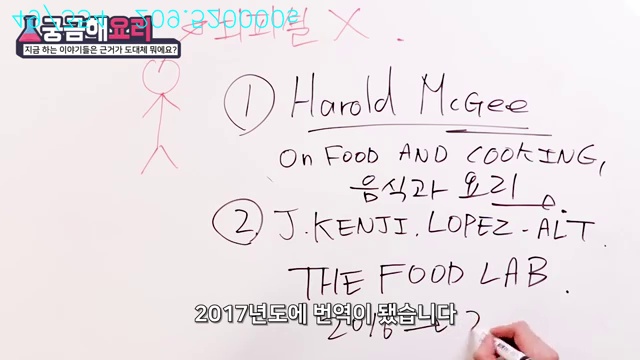 궁금해요리
지금 하는 이야기들은 근거가 도대체 뭐에요?
X.
① Harold McGee
ON FOOD AND COOKING,
음식과 요리
② J.KENJI.LOPEZ-ALT.
THE FOOD LAB.
2017년도에 번역이 됐습니다